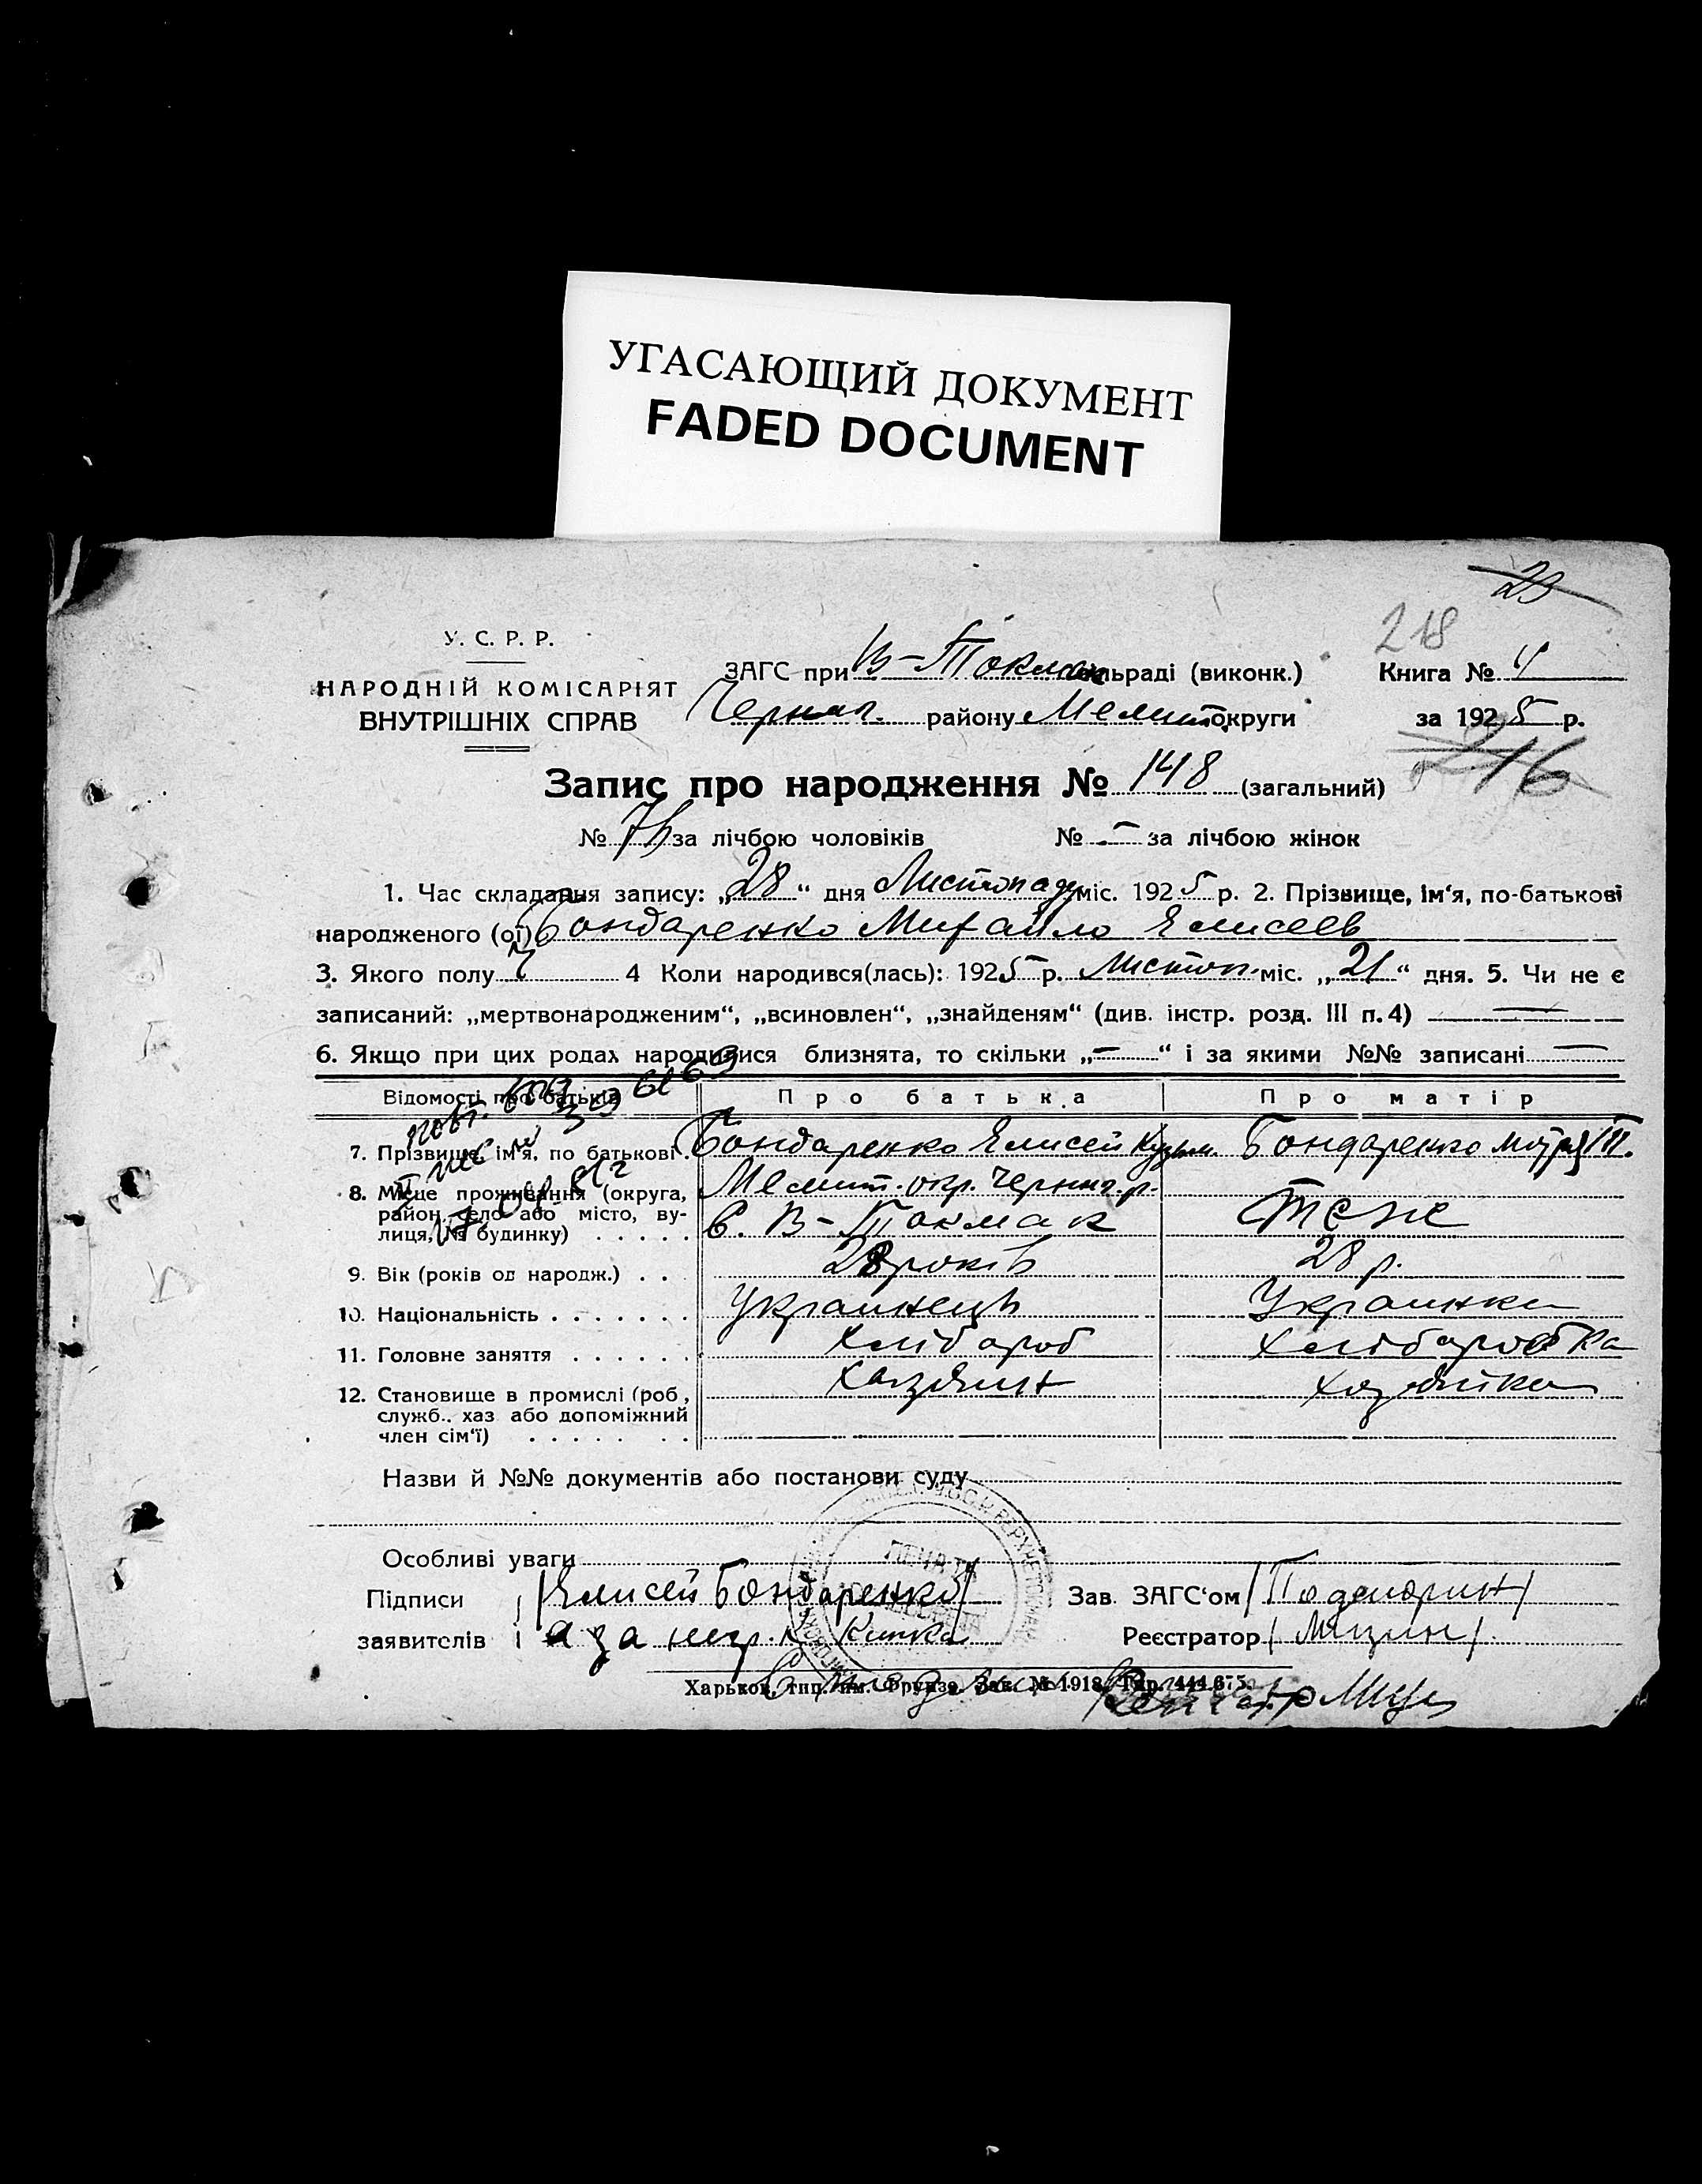 УГАСАЮЩИЙ ДОКУМЕНТ
FADED DOCUMENT
23
218
У. С. Р. Р.
НАРОДНІЙ КОМІСАРІЯТ
ВНУТРІШНІХ СПРАВ
ЗАГС при В-Токмак сільраді (виконк.)
Книга № 4
Черниг. району Мелит. округи
за 1925 р.
216
Запис про народження № 148 (загальний)
№ 75 за лічбою чоловіків № - за лічбою жінок
1. Час складання запису: „28“ дня Листопаду міс. 1925 р. 2. Прізвище, ім'я, по-батькові
народженого (ої) Бондаренко Михайло Елисеев
3. Якого полу ч 4 Коли народився(лась): 1925 р. Листоп. міс. „21“ дня. 5. Чи не є
записаний: „мертвонародженим“, „всиновлен“, „знайденям“ (див. інстр. розд. III п. 4) —
6. Якщо при цих родах народилися близнята, то скільки „—“ і за якими №№ записані —
Відомості про батьків Про батька Про матір
7. Прізвище, ім'я, по батькові. Бондаренко Елисей Кузьм. Бондаренко Мотря Т.
8. Місце проживання (округа, район, село або місто, вулиця, № будинку) Мелит. окр. Черниг. р.
с. В-Токмак Теже
9. Вік (років од народж.) 28 років 28 р.
10. Національність Украинець Украинка
11. Головне заняття Хлібороб Хлібаробка
12. Становище в промислі (роб., Хазяин Хазяйка
служб., хаз або допоміжний
член сім'ї)
Назви й №№ документів або постанови суду
Особливі уваги
Підписи /Елисей Бондаренко/ Зав. ЗАГС'ом
заявителів а за негр. Реєстратор
Харьков, тип. им. Фрунзе. Зак. № 1918. Тир. 444.675.